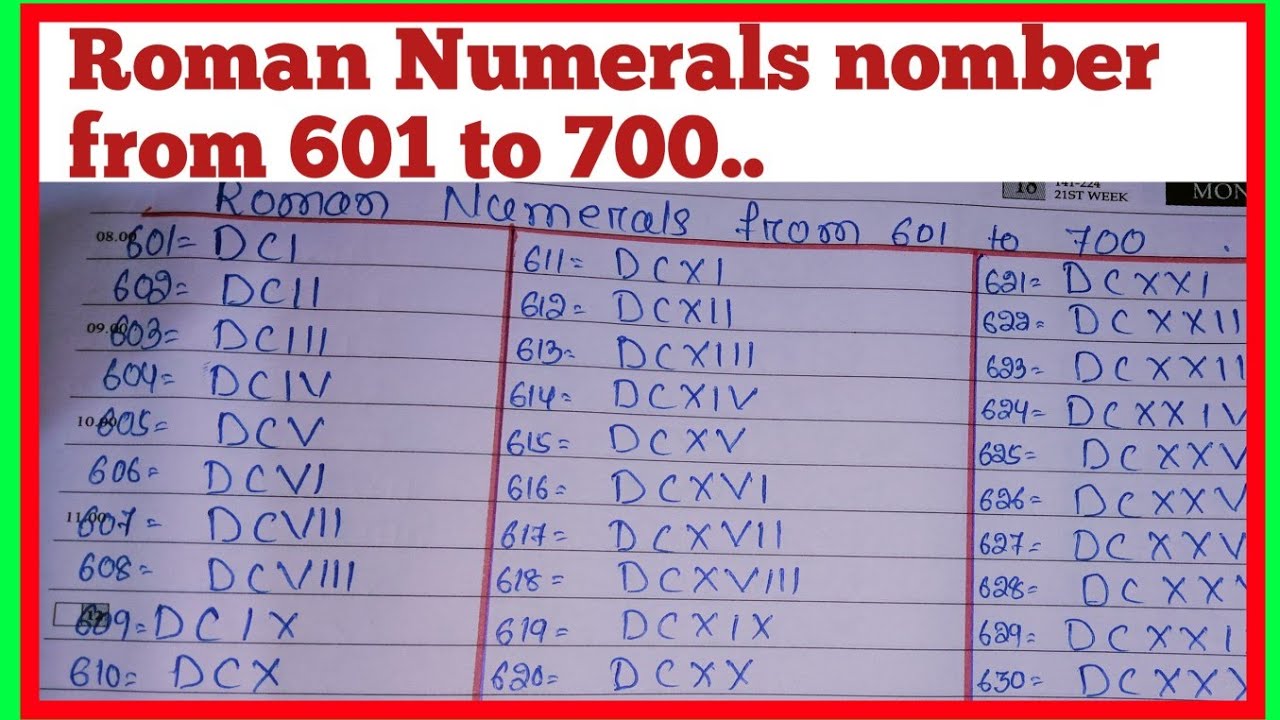 Roman Numerals nomber
from 601 to 700..
18 141-224
21ST WEEK
MON
Roman Numerals from 601 to 700 .
08.00
601= DCI
602= DCII
09.00
603= DCIII
604= DCIV
10.00
605= DCV
606= DCVI
11.00
607= DCVII
608= DCVIII
609= DCIX
610= DCX
611= DCXI
612= DCXII
613= DCXIII
614= DCXIV
615= DCXV
616= DCXVI
617= DCXVII
618= DCXVIII
619= DCXIX
620= DCXX
621= DCXXI
622= DCXXII
623= DCXXII
624= DCXXIV
625= DCXXV
626= DCXXV
627= DCXXV
628= DCXX
629= DCXXI
630= DCXXX